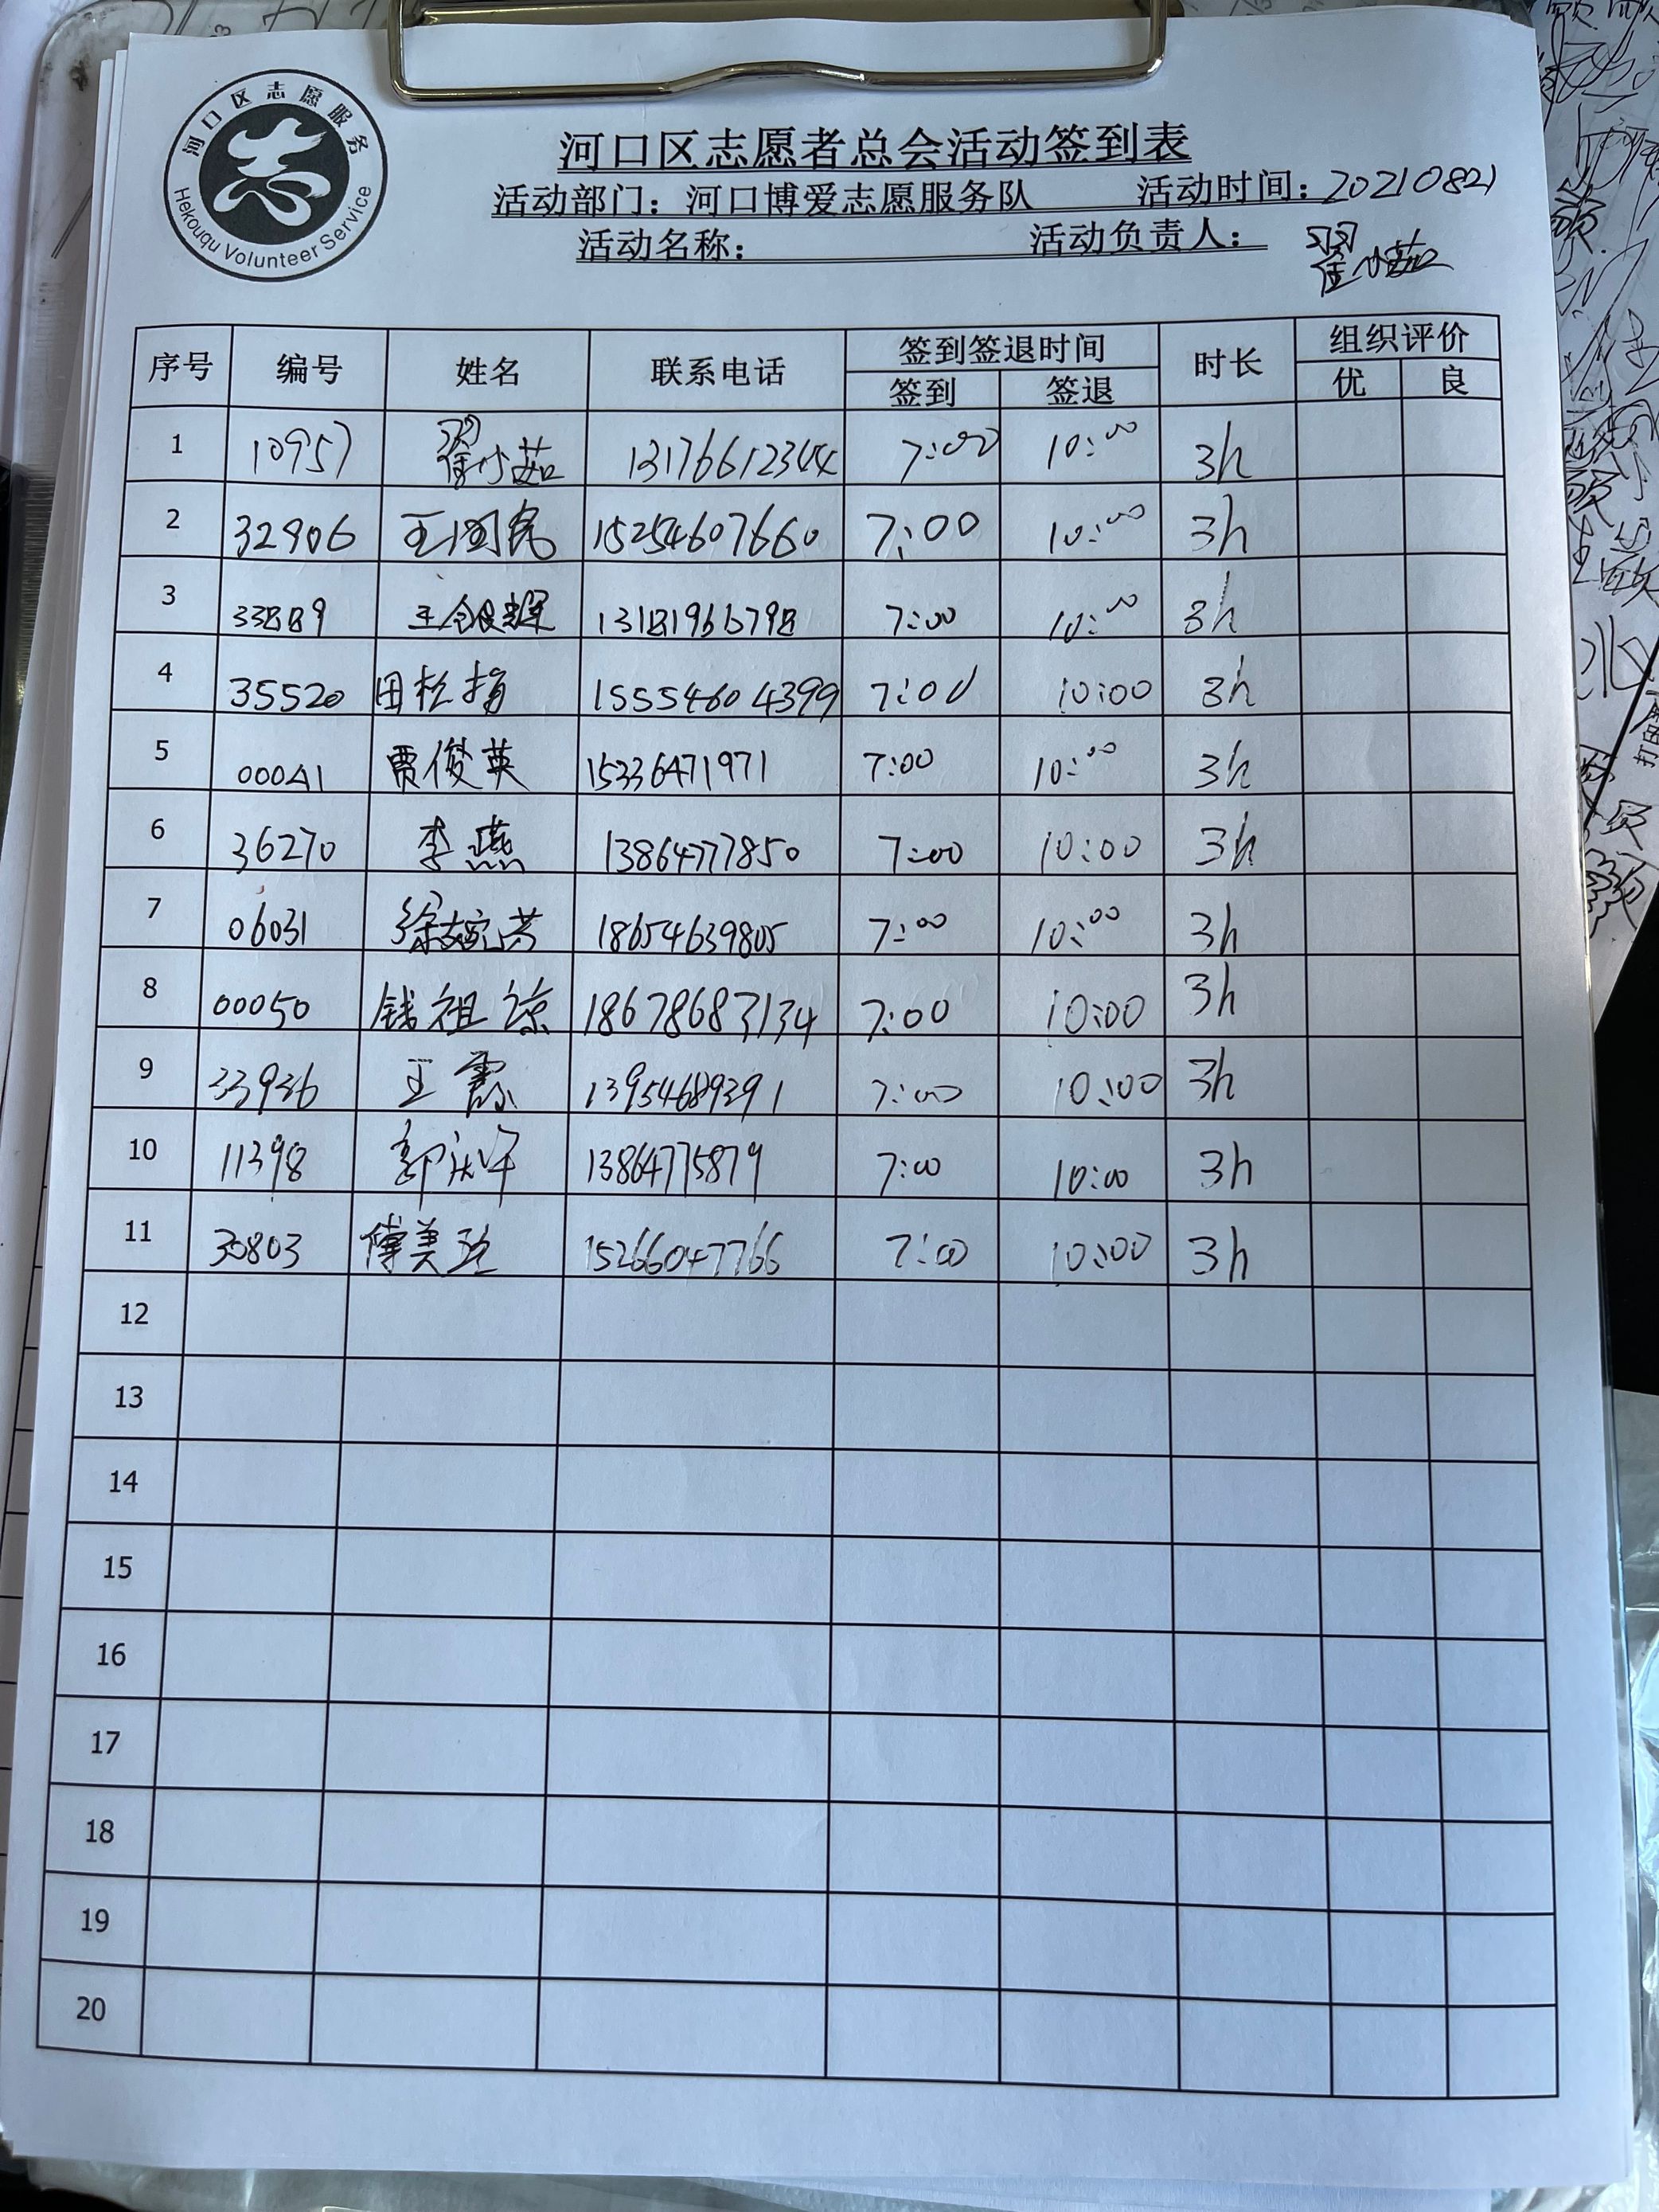 河口区志愿服务
Hekouqu Volunteer Service
河口区志愿者总会活动签到表
活动部门：河口博爱志愿服务队 活动时间：20210821
活动名称： 活动负责人： 翟小茹
序号 编号 姓名 联系电话 签到签退时间 时长 组织评价
签到 签退 优 良
1 10957 翟小茹 13176612344 7:00 10:00 3h
2 32906 王国宾 15254607660 7:00 10:00 3h
3 33889 王银翠 13181966798 7:00 10:00 3h
4 35520 田松梅 15554604399 7:00 10:00 3h
5 00041 贾俊英 15336471971 7:00 10:00 3h
6 36270 李燕 13864777850 7:00 10:00 3h
7 06031 徐婉芳 18654639805 7:00 10:00 3h
8 00050 钱祖谅 18678683134 7:00 10:00 3h
9 33936 王霞 13954689391 7:00 10:00 3h
10 11398 郭 13864775879 7:00 10:00 3h
11 30803 傅美玲 15266047766 7:00 10:00 3h
12
13
14
15
16
17
18
19
20